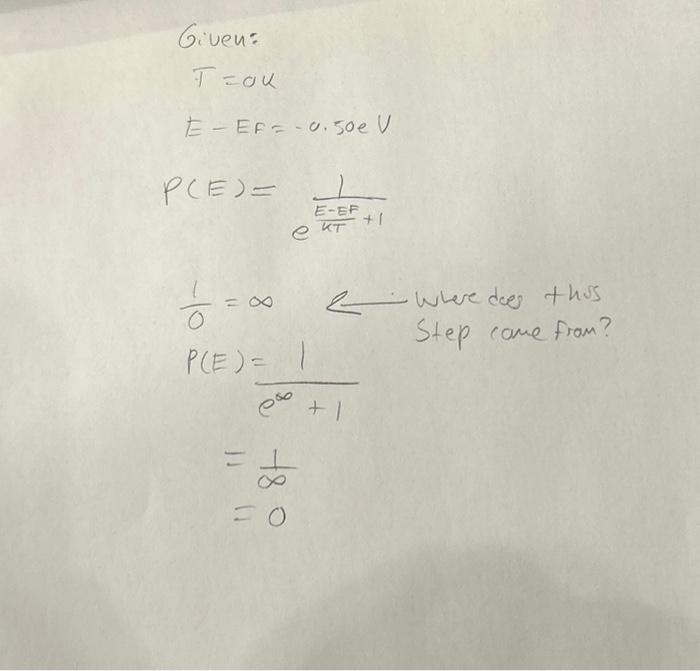 Given:
T = 0K
E - EF = -0.50eV
P(E) = 1 / e^((E-EF)/KT) + 1
1/0 = ∞ ← Where does this
Step come from?
P(E) = 1 / (e^∞ + 1)
= 1/∞
= 0